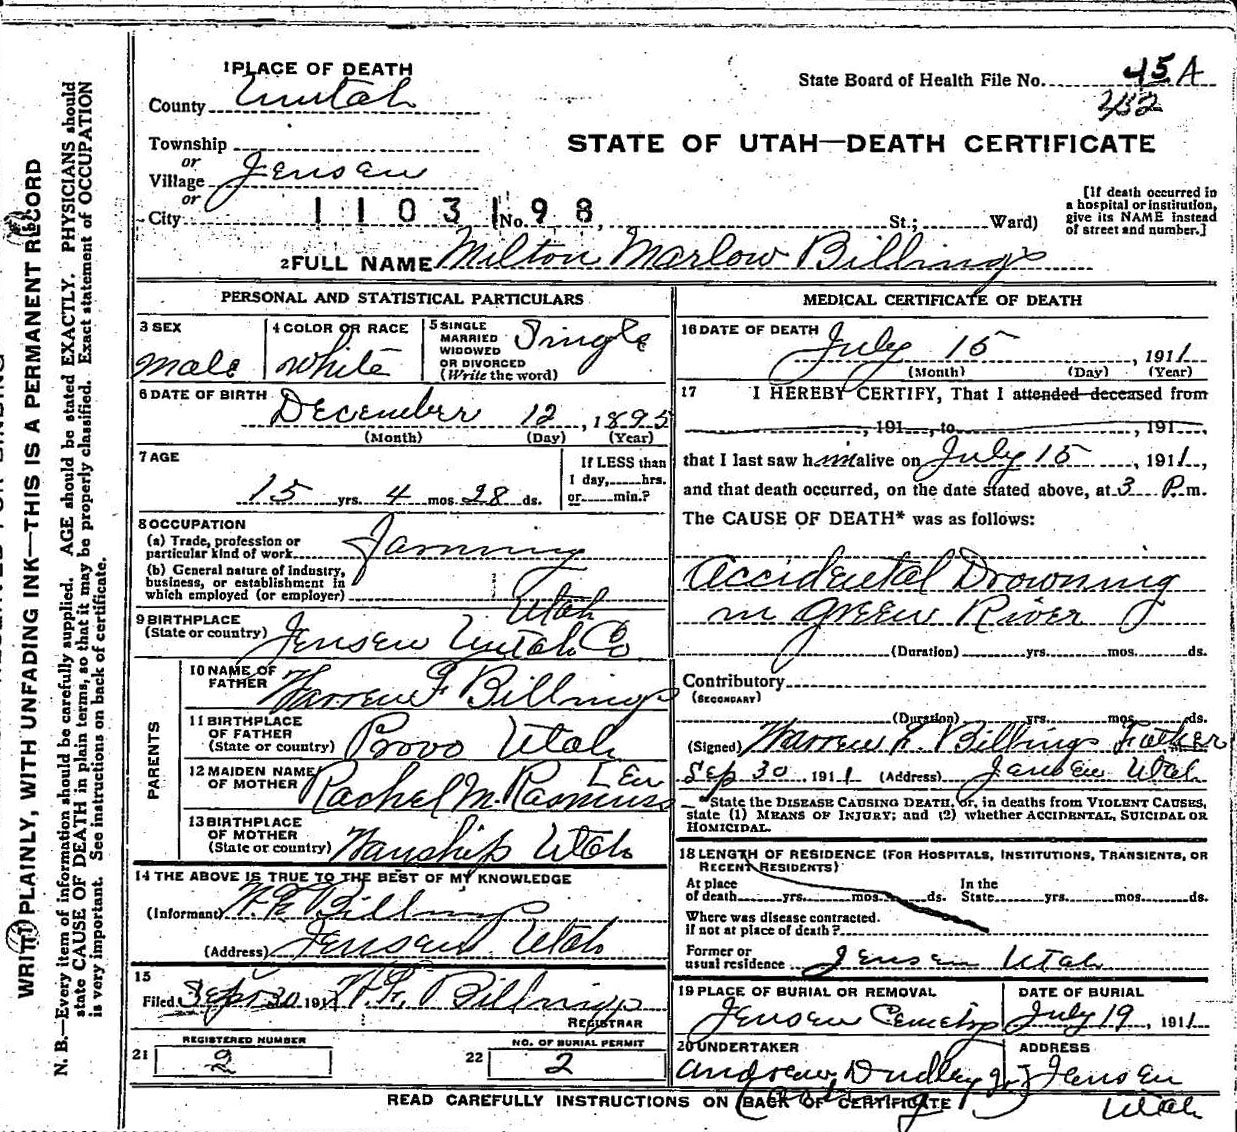 1 PLACE OF DEATH
County Uintah
State Board of Health File No. 45 A
232
STATE OF UTAH—DEATH CERTIFICATE
Township
or
Village Jensen
or
City 1 1 0 3 1 No. 9 8 St.; Ward)
[If death occurred in
a hospital or institution,
give its NAME instead
of street and number.]
2 FULL NAME Milton Marlow Billings
PERSONAL AND STATISTICAL PARTICULARS
3 SEX
male
4 COLOR OR RACE
white
5 SINGLE
MARRIED
WIDOWED
OR DIVORCED
(Write the word)
Single
6 DATE OF BIRTH
December 12, 1895
(Month) (Day) (Year)
7 AGE
15 yrs. 4 mos. 28 ds.
If LESS than
1 day, hrs.
or min.?
8 OCCUPATION
(a) Trade, profession or
particular kind of work
(b) General nature of industry,
business, or establishment in
which employed (or employer)
9 BIRTHPLACE
(State or country)
Utah
Jensen Uintah Co
PARENTS
10 NAME OF
FATHER
Warren F Billings
11 BIRTHPLACE
OF FATHER
(State or country)
Provo Utah
12 MAIDEN NAME
OF MOTHER
Rachel M. Rasmuss
13 BIRTHPLACE
OF MOTHER
(State or country)
Wanship Utah
14 THE ABOVE IS TRUE TO THE BEST OF MY KNOWLEDGE
(Informant) W. F. Billings
(Address) Jensen Utah
15
Filed Sept 30 191 W. F. Billings
REGISTRAR
21 REGISTERED NUMBER
2
22 NO. OF BURIAL PERMIT
2
MEDICAL CERTIFICATE OF DEATH
16 DATE OF DEATH
July 15, 1911
(Month) (Day) (Year)
17 I HEREBY CERTIFY, That I attended deceased from
, 191 , to , 191 ,
that I last saw him alive on July 15, 1911,
and that death occurred, on the date stated above, at 3 P. m.
The CAUSE OF DEATH* was as follows:
Accidental Drowning
in Green River
(Duration) yrs. mos. ds.
Contributory
(SECONDARY)
(Duration) yrs. mos. ds.
(Signed) Warren F. Billings Father
Sep 30 1911 (Address) Jensen Utah
State the DISEASE CAUSING DEATH, or, in deaths from VIOLENT CAUSES,
state (1) MEANS OF INJURY; and (2) whether ACCIDENTAL, SUICIDAL OR
HOMICIDAL.
18 LENGTH OF RESIDENCE (FOR HOSPITALS, INSTITUTIONS, TRANSIENTS, OR
RECENT RESIDENTS)
At place
of death yrs. mos. ds.
In the
State yrs. mos. ds.
Where was disease contracted.
if not at place of death?
Former or
usual residence Jensen Utah
19 PLACE OF BURIAL OR REMOVAL
Jensen
DATE OF BURIAL
July 19, 1911
20 UNDERTAKER
Andrew Dudley Jr
ADDRESS
Jensen
Utah
READ CAREFULLY INSTRUCTIONS ON BACK OF CERTIFICATE
WRITE PLAINLY, WITH UNFADING INK—THIS IS A PERMANENT RECORD
N. B.—Every item of information should be carefully supplied. AGE should be stated EXACTLY. PHYSICIANS should
state CAUSE OF DEATH in plain terms, so that it may be properly classified. Exact statement of OCCUPATION
is very important. See instructions on back of certificate.